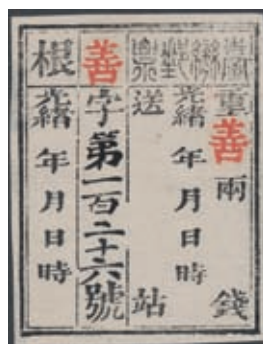 臺灣郵票
重善兩錢
光緒年月日時
送站
善字第一百二十六號
根
光緒年月日時